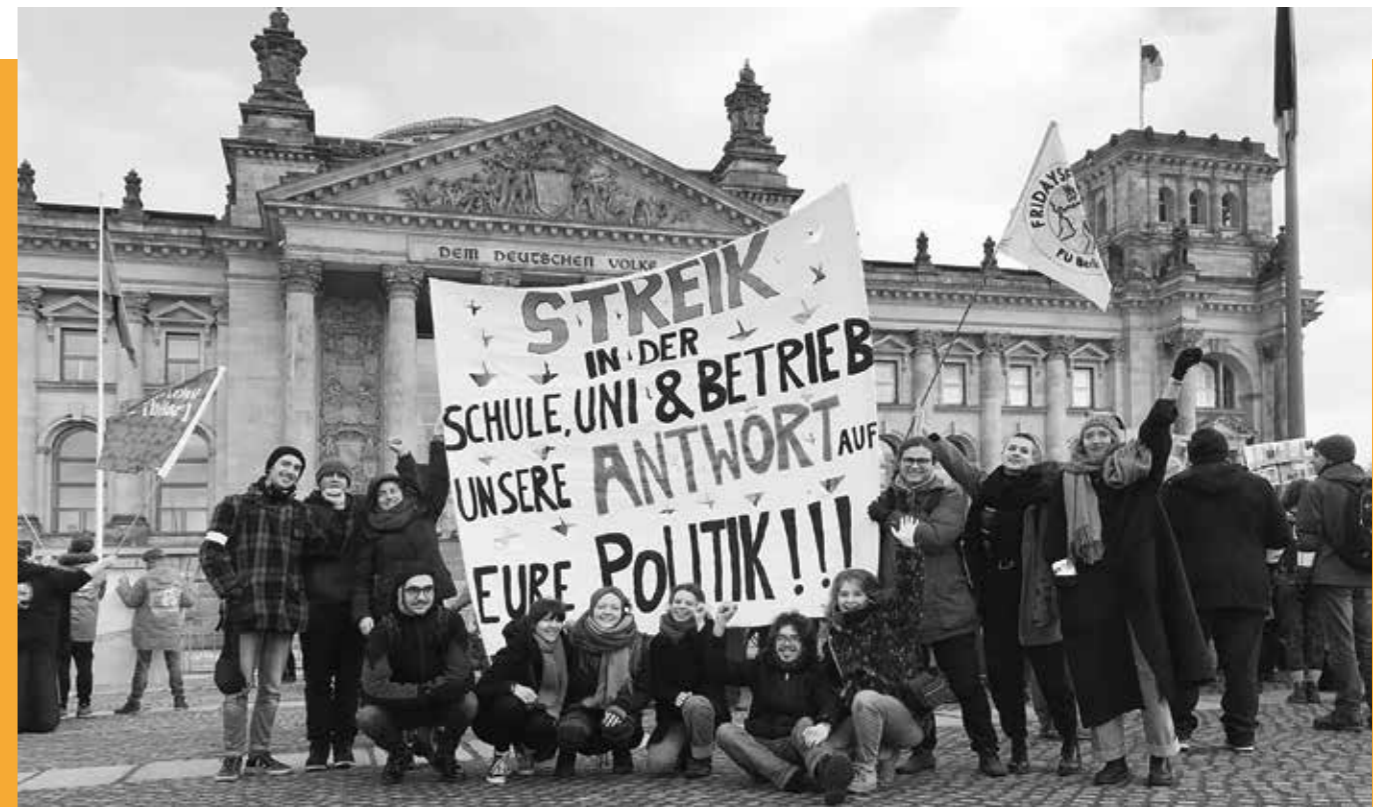 DEM DEUTSCHEN VOLKE
STREIK
IN DER
SCHULE, UNI & BETRIEB
UNSERE ANTWORT AUF
EURE POLITIK!!!
FRIDAYS
FU Berlin